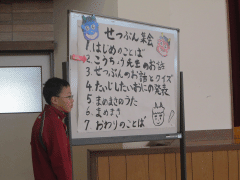 せつぶん集会
1.はじめのことば
2.こうちょう先生のお話
3.せつぶんのお話とクイズ
4.たいじしたいおにの発表
5.まめまきのうた
6.まめまき
7.おわりのことば